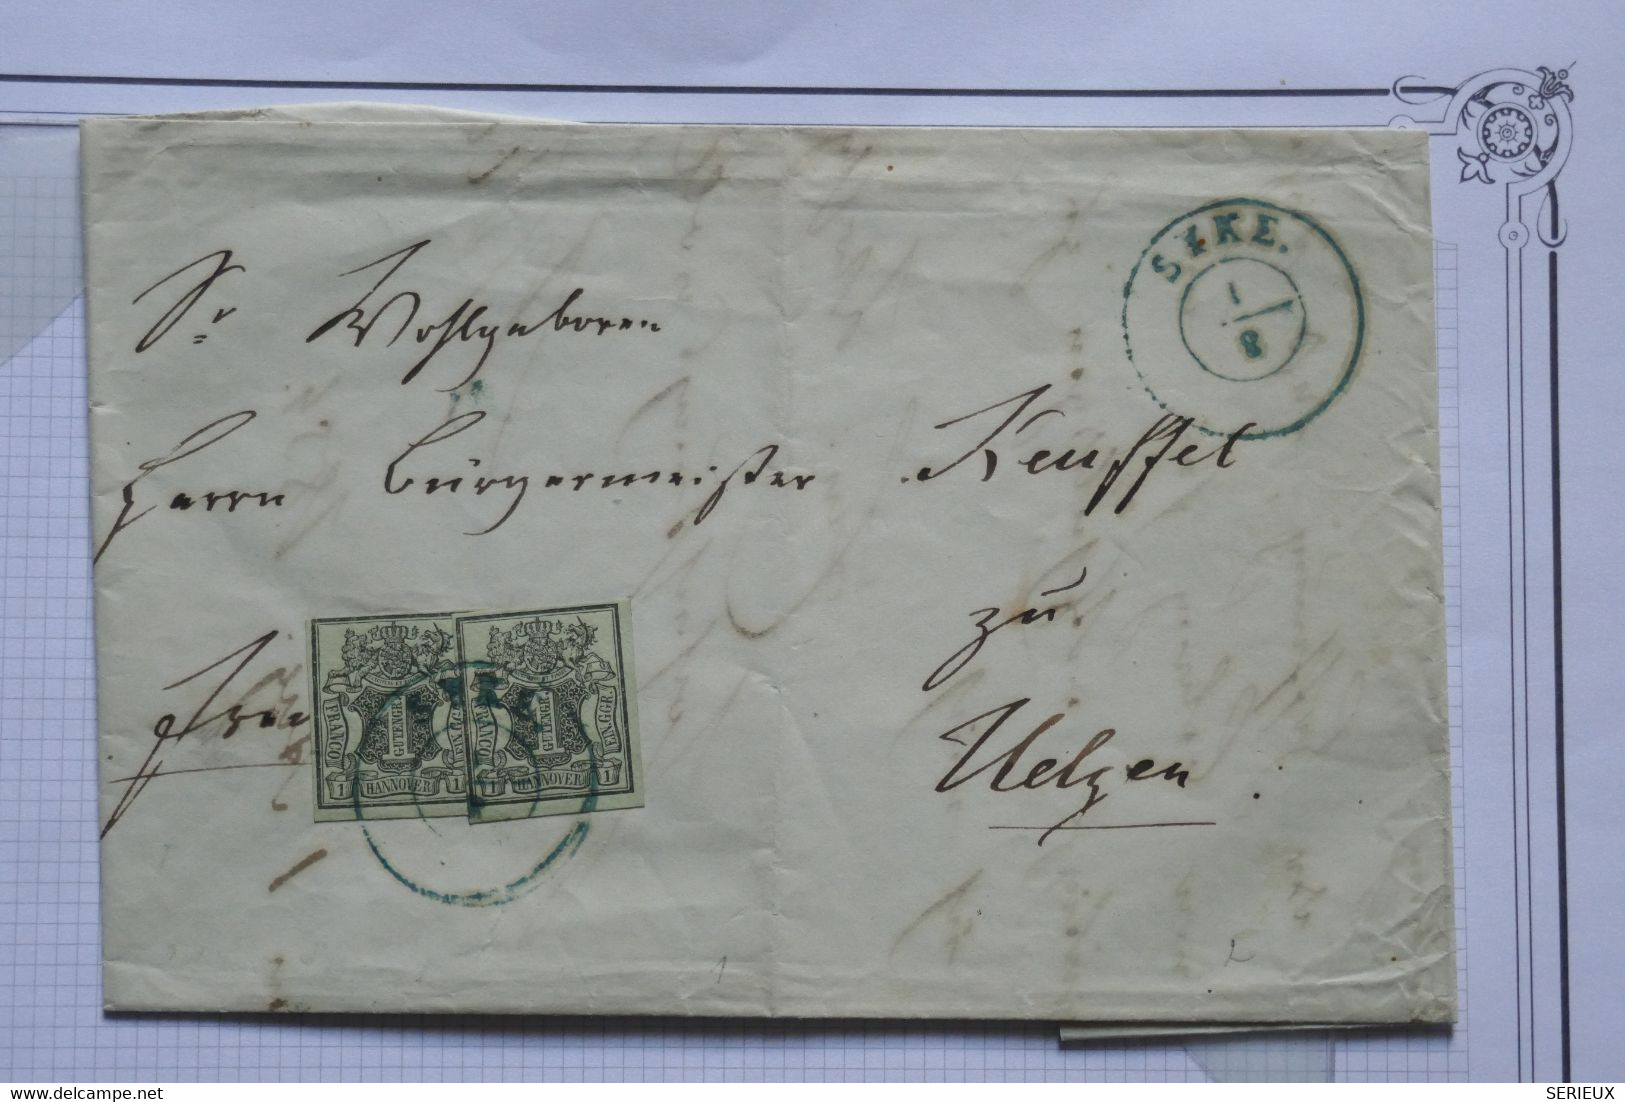 SYKE.
1/8
Sr Wohlgeboren
Herrn Bürgermeister Keuffel
zu
Uelzen.
FRANCO
1
GUTENGR
1 HANNOVER 1
FRANCO
1
GUTENGR
EIN GGR
1 HANNOVER 1
1
delcampe.net
SERIEUX